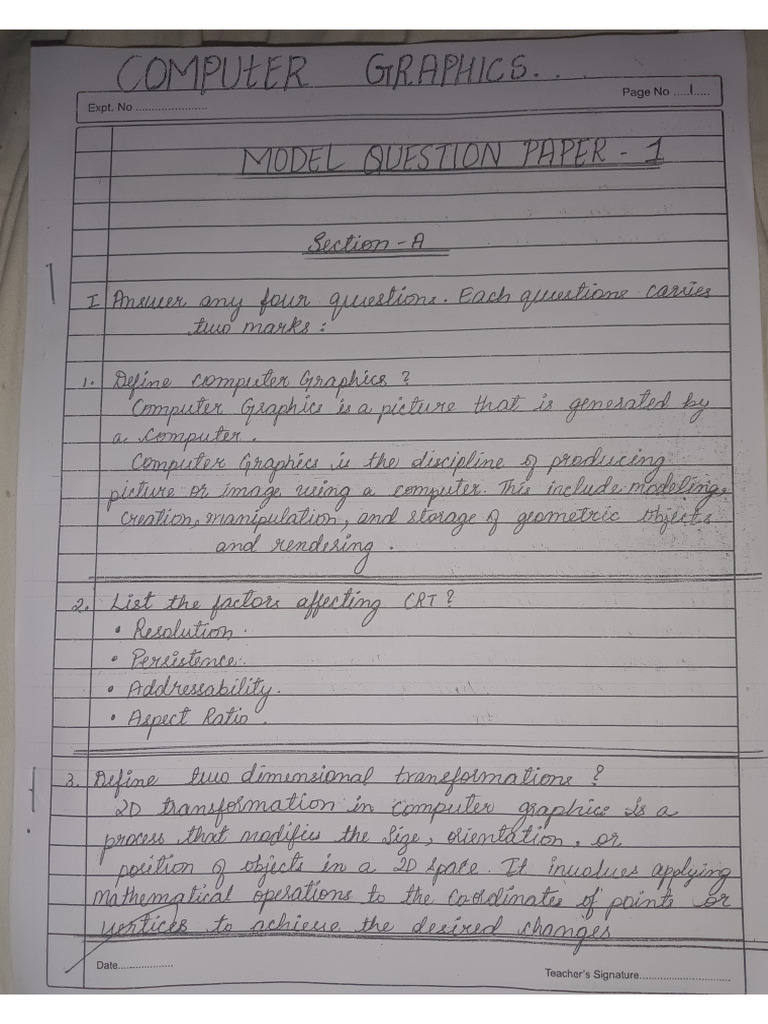 COMPUTER GRAPHICS...
Expt. No ......................
Page No .....1.....
MODEL QUESTION PAPER - 1
Section - A
I Answer any four questions. Each questions carries
two marks :
1. Define Computer Graphics ?
Computer Graphics is a picture that is generated by
a Computer.
Computer Graphics is the discipline of producing
picture or image using a computer. This include modeling,
creation, manipulation, and storage of geometric objects
and rendering.
2. List the factors affecting CRT ?
• Resolution.
• Persistence.
• Addressability.
• Aspect Ratio.
3. Define two dimensional transformations ?
2D transformation in computer graphics is a
process that modifies the Size, orientation, or
position of objects in a 2D space. It involves applying
mathematical operations to the coordinates of points or
vertices to achieve the desired changes
Date..................
Teacher's Signature..............................